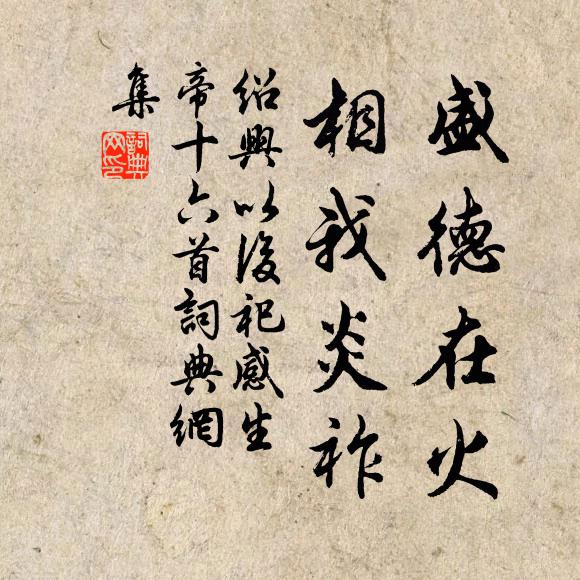 盛德在火
相我炎祚
紹興以後祀感生
帝十六首詞典網
集
詞典
网印